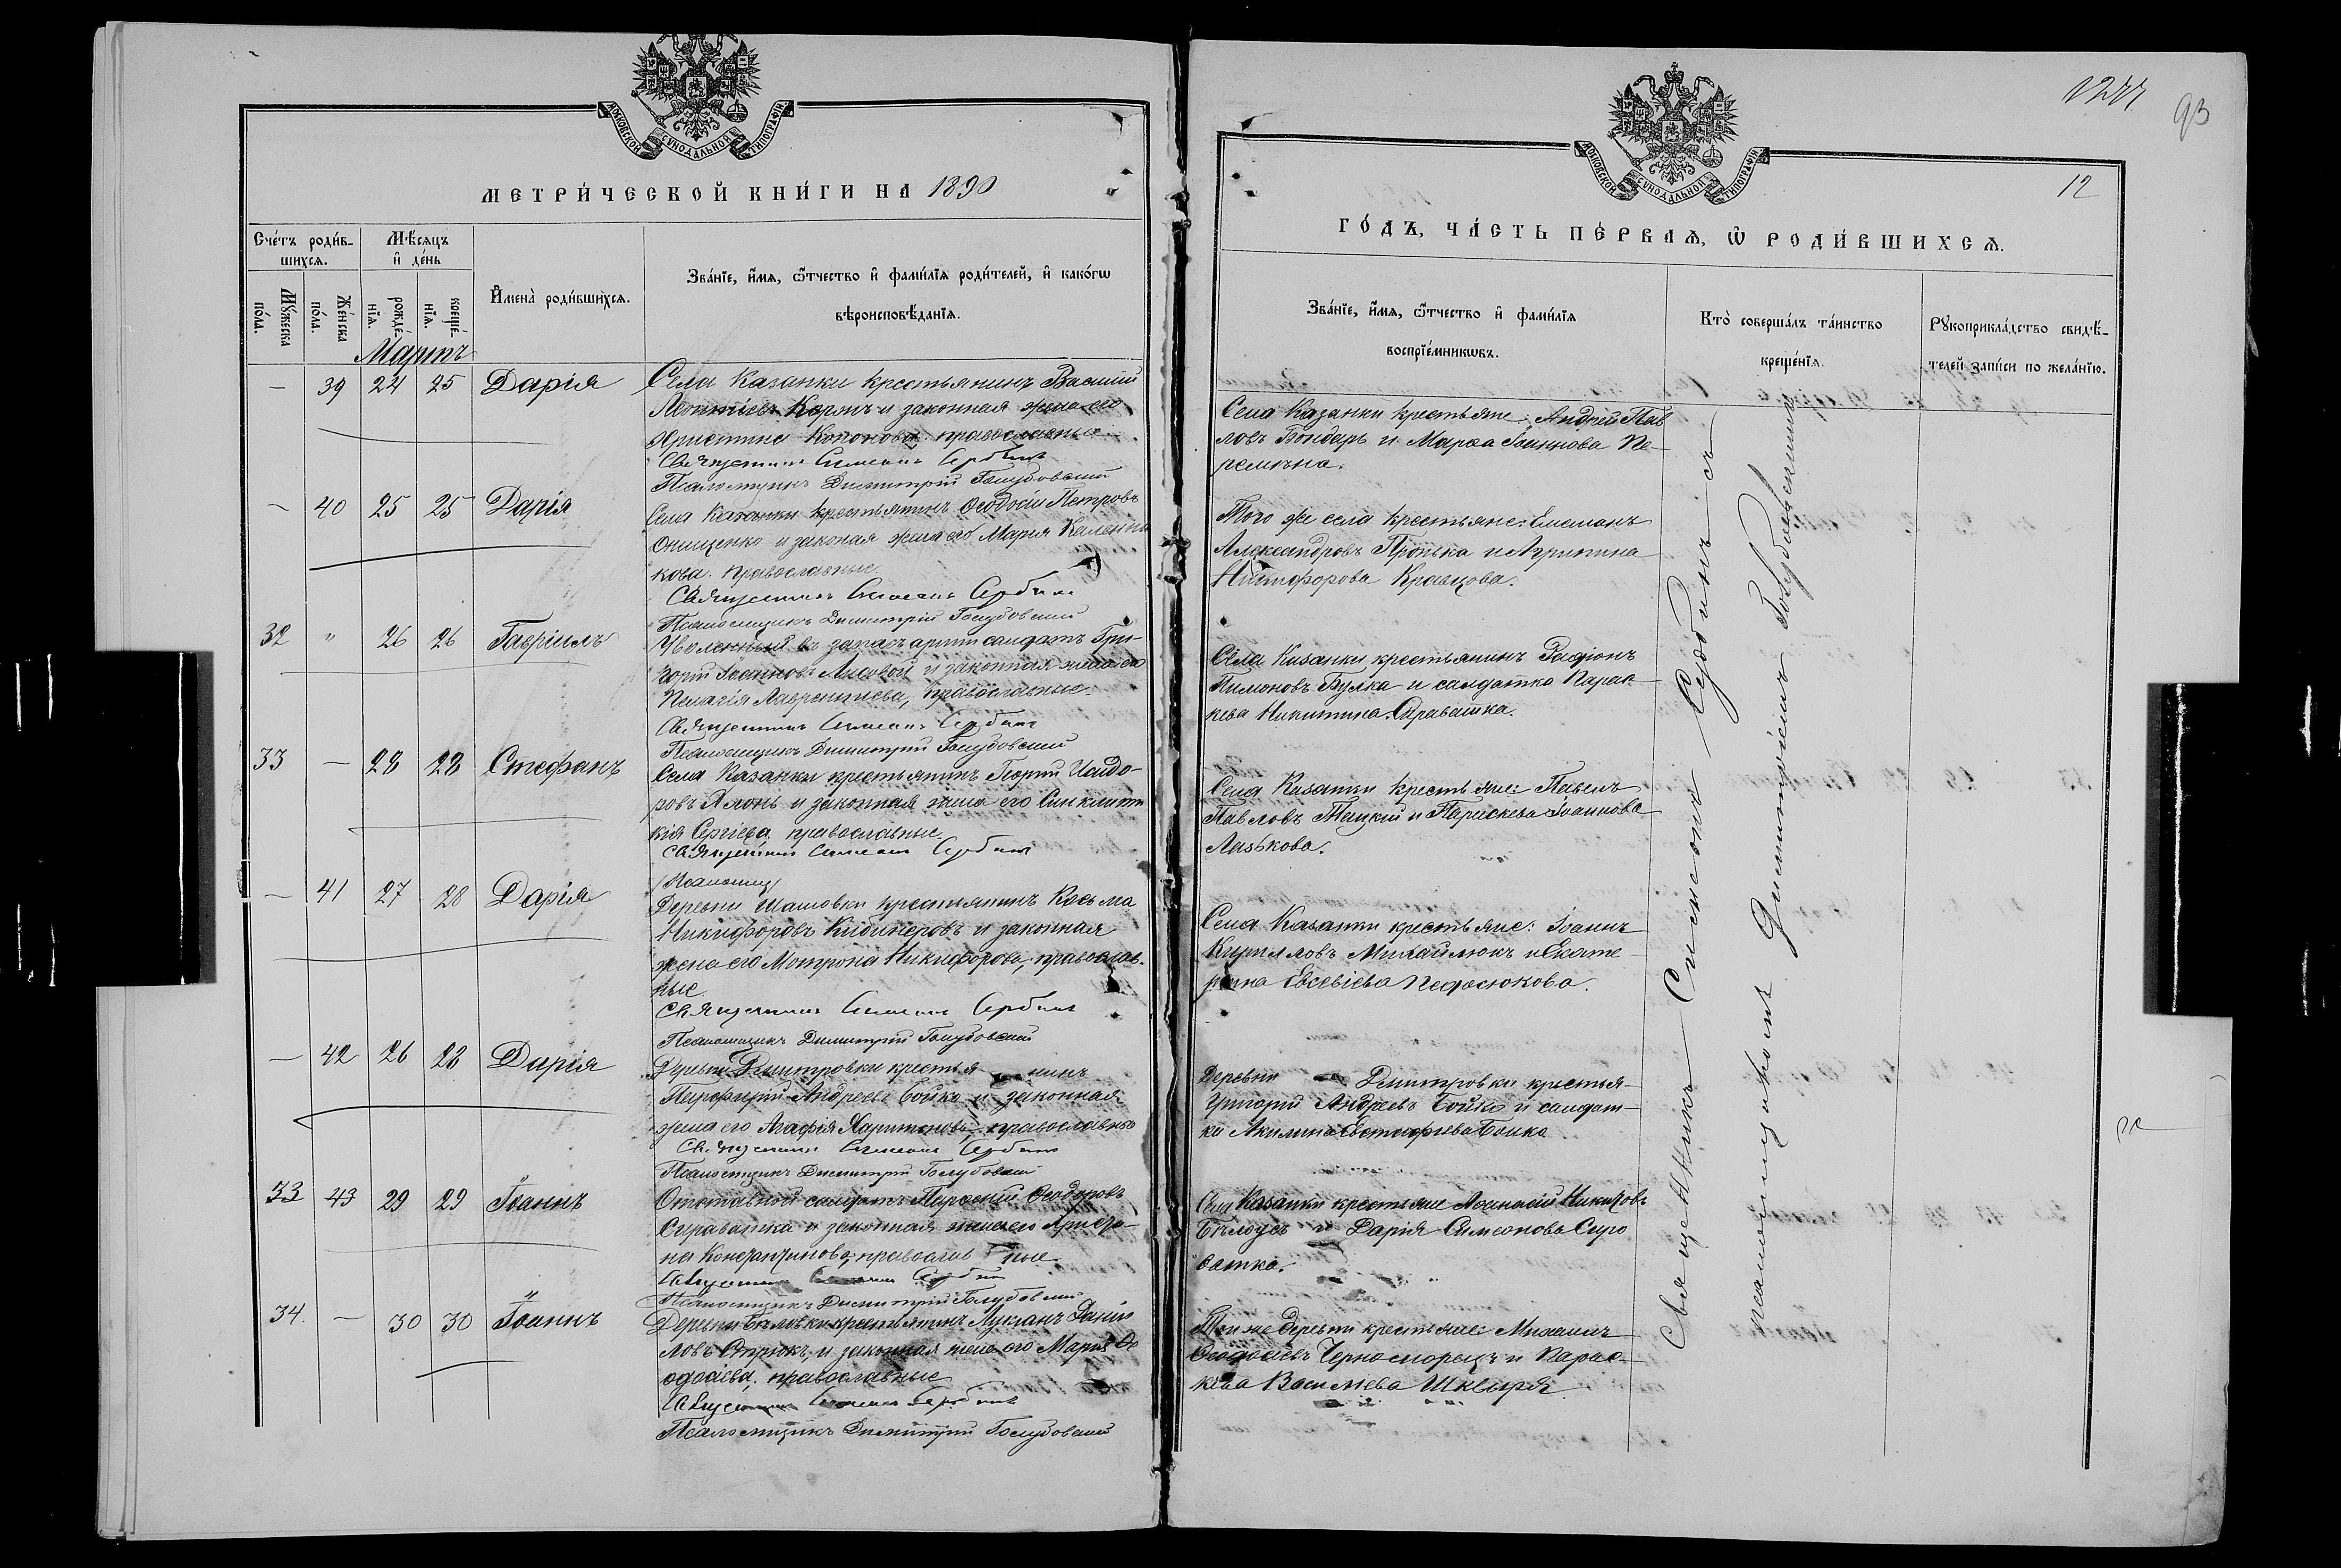 МОСКОВСКОЙ СѴНОДАЛЬНОЙ ТИПОГРАФІИ
МЕТРИ́ЧЕСКОЙ КНИ́ГИ НА 1890
Сче́тъ роди́в-
шихся.
Мѣ́сяцъ
и҆ де́нь
Мꙋ́жеска
по́ла.
Же́нска
по́ла.
рожде́-
нїя.
креще́-
нїя.
И҆мена̀ роди́вшихся.
Зва́нїе, и҆́мя, ѻ҆́тчество и҆ фами́лїя роди́телей, и҆ како́гѡ
вѣроисповѣ́данїя.
Мартъ
— 39 24 25 Дарія
Села Казанки крестьянинъ Василій
Леонтіевъ Коржъ и законная жена его
Христина Кононова православные
Священникъ Симеонъ Сербинъ
Псаломщикъ Димитрій Голубовскій
— 40 25 25 Дарія
Села Казанки крестьянинъ Ѳеодосій Петровъ
Онищенко и законая жена его Марія Каленни
кова. православные.
Священникъ Симеонъ Сербинъ
Псаломщикъ Димитрій Голубовскій
32 " 26 26 Гавріилъ
Уволенный въ запасъ арміи солдатъ Гри-
горій Іоанновъ Лисовой и законная жена его
Пелагія Лаврентіева, православные.
Священникъ Симеонъ Сербинъ
Псаломщикъ Димитрій Голубовскій
33 — 28 28 Стефанъ
Села Казанки крестьянинъ Георгій Исидо-
ровъ Ялонь и законная жена его Синклити
кія Сергіева православные.
Священникъ Симеонъ Сербинъ
(Псаломщ)
— 41 27 28 Дарія
Деревни Шашовки крестьянинъ Косьма
Никифоровъ Кибинеровъ и законная
жена его Мотрона Никифорова, православ-
ные
Священникъ Симеонъ Сербинъ
Псаломщикъ Димитрій Голубовскій
— 42 26 28 Дарія
Деревни Дмитровки крестья нинъ
Парфирій Андреевъ Бойко и законная
жена его Агафія Харитонова, православные
Священникъ Симеонъ Сербинъ
Псаломщикъ Димитрій Голубовскій
33 43 29 29 Іоаннъ
Отставной солдатъ Ѳеодоровъ
Сироватка и законная жена его Христи-
на Константинова, православ ные
Священникъ Симеонъ Сербинъ
Псаломщикъ Димитрій Голубовскій
34. — 30 30 Іоаннъ
Деревни Бѣловки крестьянинъ Лукіанъ Даніи
ловъ и законная жена его Марія Ѳе
одосіева, православные
Священникъ Симеонъ Сербинъ
Псаломщикъ Димитрій Голубовскій
1244
93
МОСКОВСКОЙ СѴНОДАЛЬНОЙ ТИПОГРАФІИ
12
ГО́ДЪ, ЧА́СТЬ ПЕ́РВАЯ, Ѡ҆ РОДИ́ВШИХСЯ.
Зва́нїе, и҆́мя, ѻ҆́тчество и҆ фами́лїя
воспрїе́мникѡвъ.
Кто̀ соверша́лъ та́инство
креще́нїя.
Рꙋкоприкла́дство свидѣ́-
телей за́писи по жела́нїю.
Села Казанки крестьяне: Андрей Пав
ловъ Бондарь и Марѳа Іоаннова Пе-
ремѣна.
Того же села крестьяне: Емеліанъ
Александровъ Пронька и Агрипина
Никифорова Кравцова.
Села Казанки крестьянинъ Родіонъ
Пимоновъ Булка и солдатка Парас-
кева Никитина Сироватка.
Села Казанки крестьяне: Павелъ
Павловъ Тицкій и Параскева Іоаннова
Лазькова.
Села Казанки крестьяне: Іоаннъ
Кирилловъ Михайлюкъ и Екате-
рина Евсевіева Недосюкова.
Деревни Дмитровки крестья-
Григорій Андреевъ Бойко и солдат-
ка Акилина Евстафіева Бойко
Села Казанки крестьяне Аѳанасій Никитовъ
Бѣлоусъ и Дарія Симеонова Сиро
ватка.
Той же деревни крестьяне: Михаилъ
Ѳеодосіевъ Черноморецъ и Парас-
кева Васильева Шквыря
Священникъ Симеонъ Сербинъ съ
псаломщикомъ Димитріемъ Голубовскимъ